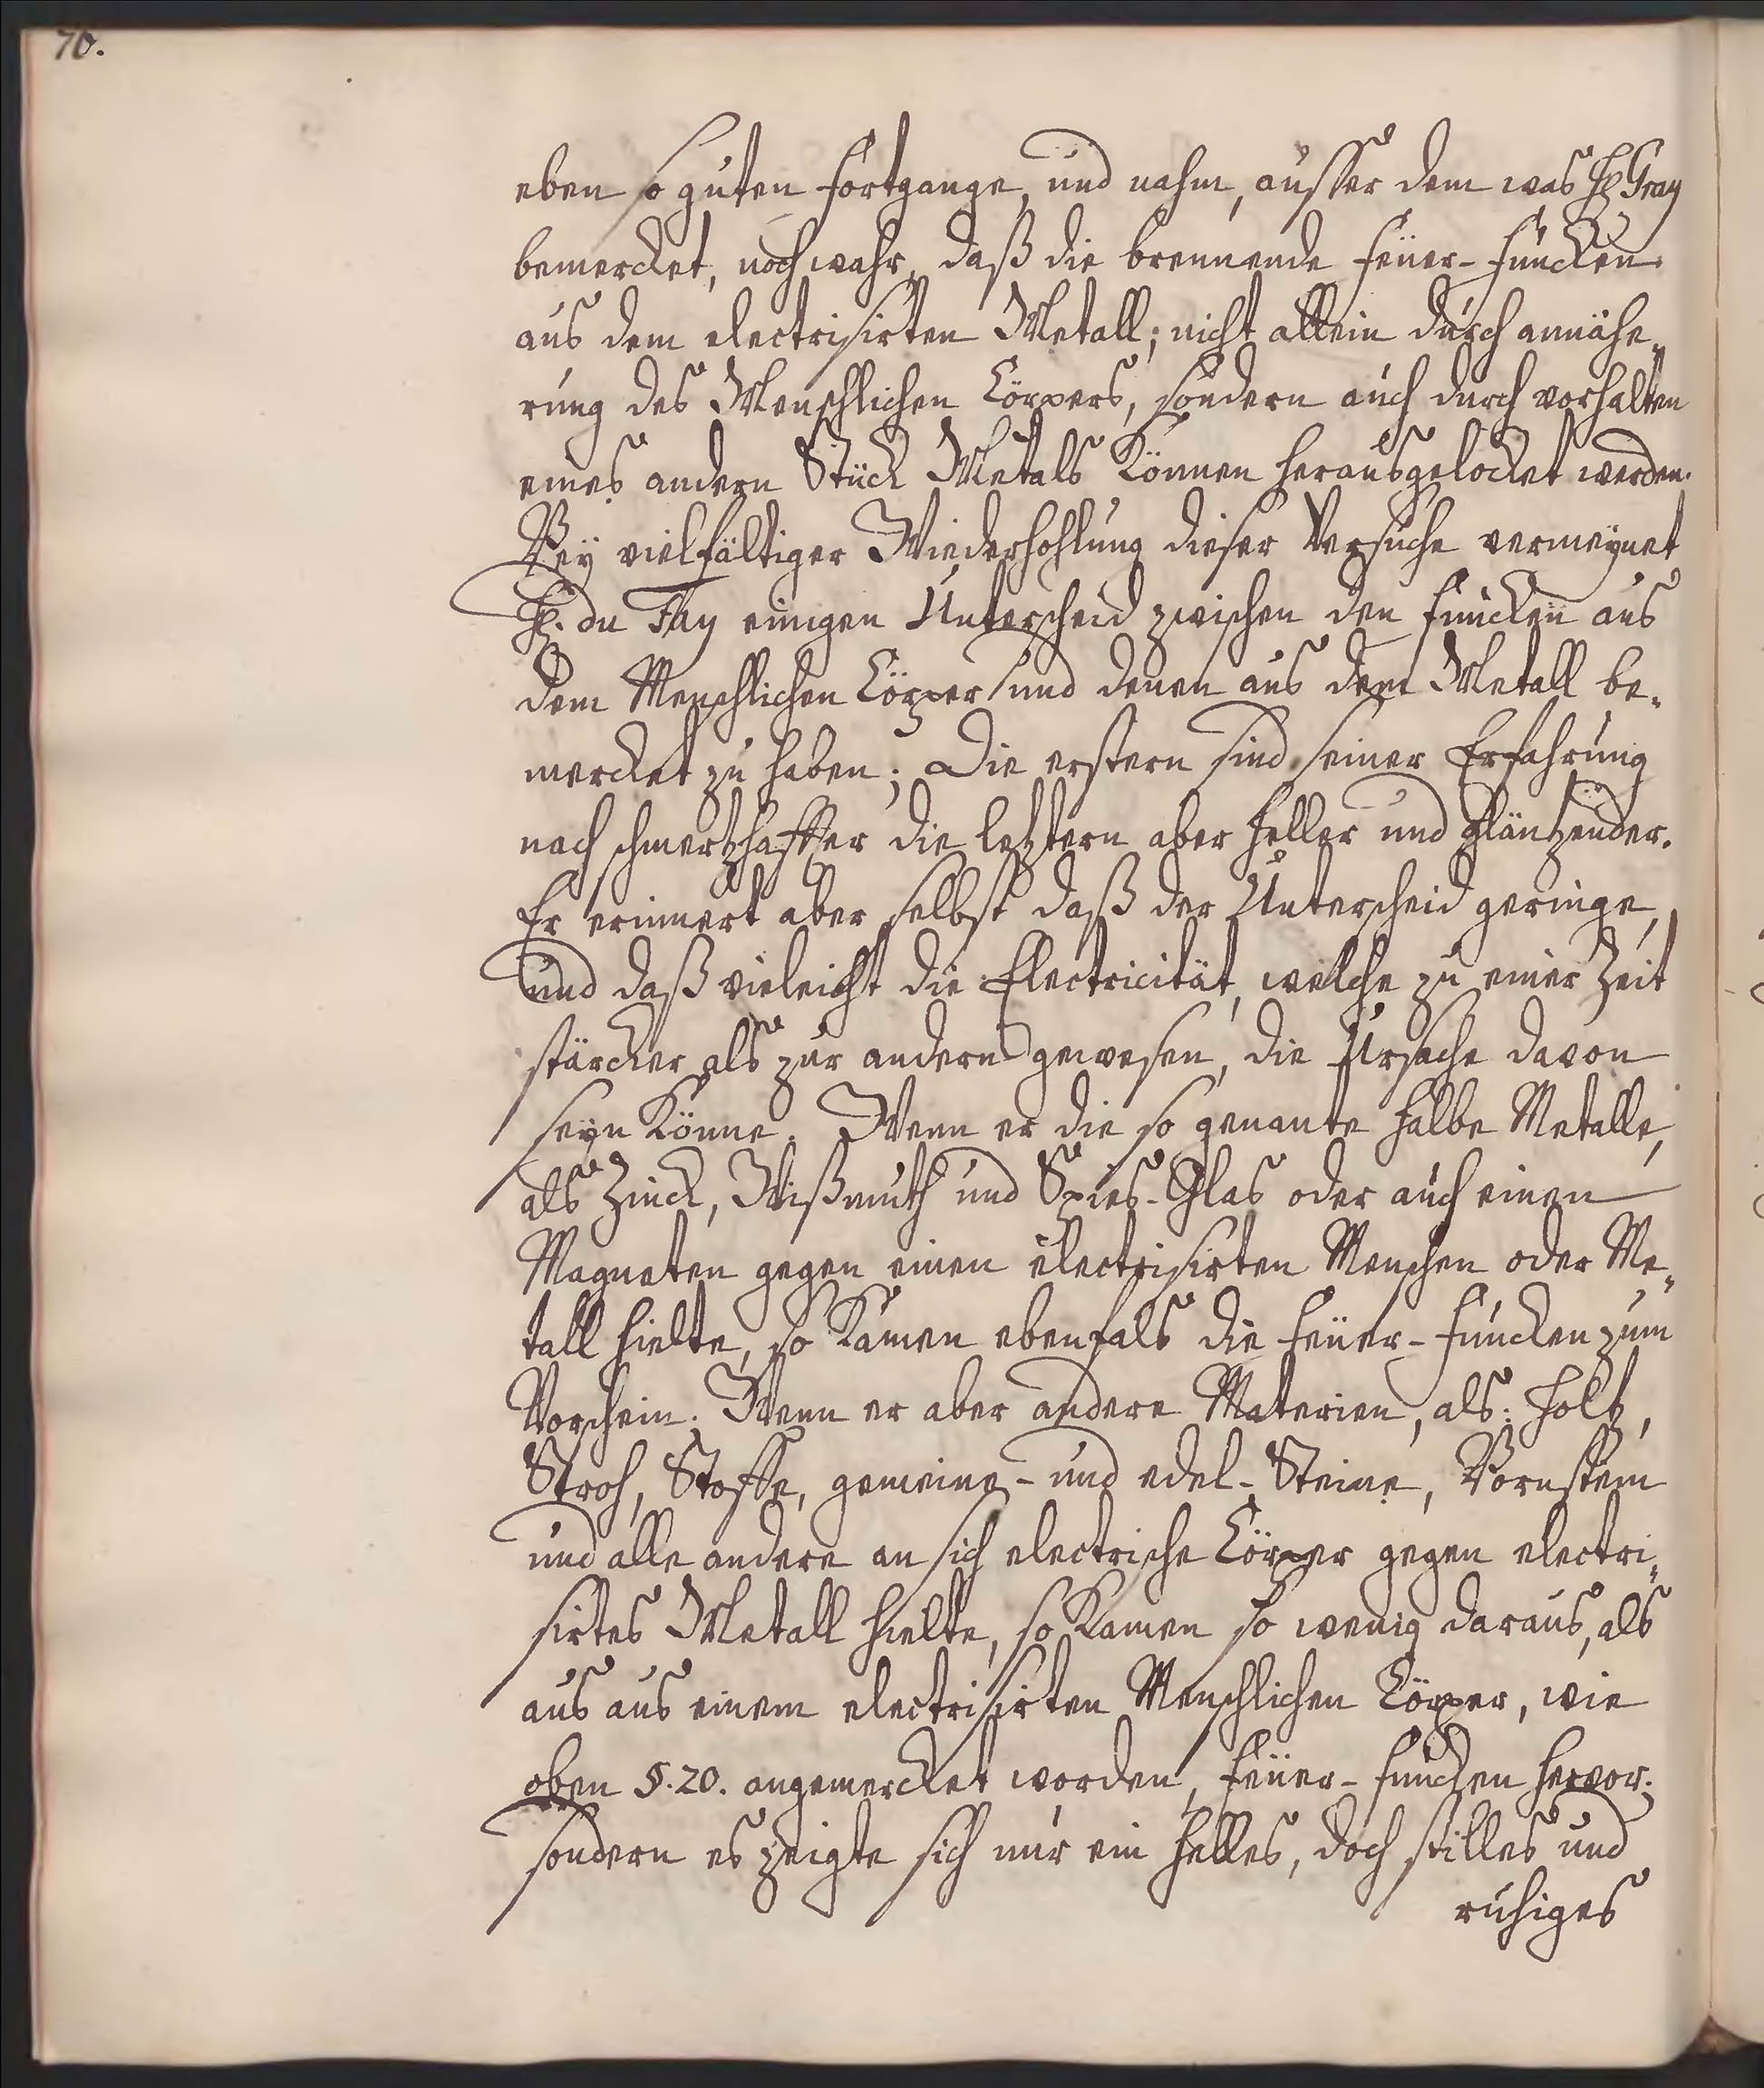 70.
eben so guten Fortgange, und nahm, ausser dem was H. Gray
bemercket, noch wahr, daß die brennende Feüer-Funcken
aus dem electrisirten Metall; nicht allein durch annähe„
rung des Menschlichen Cörpers, sondern auch durch vorhalten
eines andern Stück Metals können herausgelocket werden.
Bey vielfältiger Wiederhohlung dieser Versuche vermeynet
H. du Fay einigen Unterscheid zwischen den Funcken aus
dem Menschlichen Cörper und denen aus dem Metall be„
mercket zu haben; Die erstern sind seiner Erfahrung
nach schmertzhaffter die letztern aber heller und gläntzender.
Er erinnert aber selbst daß der Unterscheid geringe,
und daß vieleicht die Electricität, welche zu einer Zeit
stärcker als zur andern gewesen, die Ursache davon
seyn könne. Wenn er die so genante halbe Metalle,
als Zinck, Wißmuth und Spies-Glas oder auch einen
Magneten gegen einen electrisirten Menschen oder Me„
tall hielte, so kamen ebenfals die Feüer-Funcken zum
Vorschein. Wenn er aber andere Materien, als: Holtz,
Stroh, Stoffe, gemeine- und edel-Steine, Bornstein
und alle andere an sich electrische Cörper gegen electri„
sirtes Metall hielte, so kamen so wenig daraus, als
aus aus einem electrisirten Menschlichen Cörper, wie
oben §. 20. angemercket worden, Feüer-Funcken hervor;
sondern es zeigte sich nur ein helles, doch stilles und
ruhiges